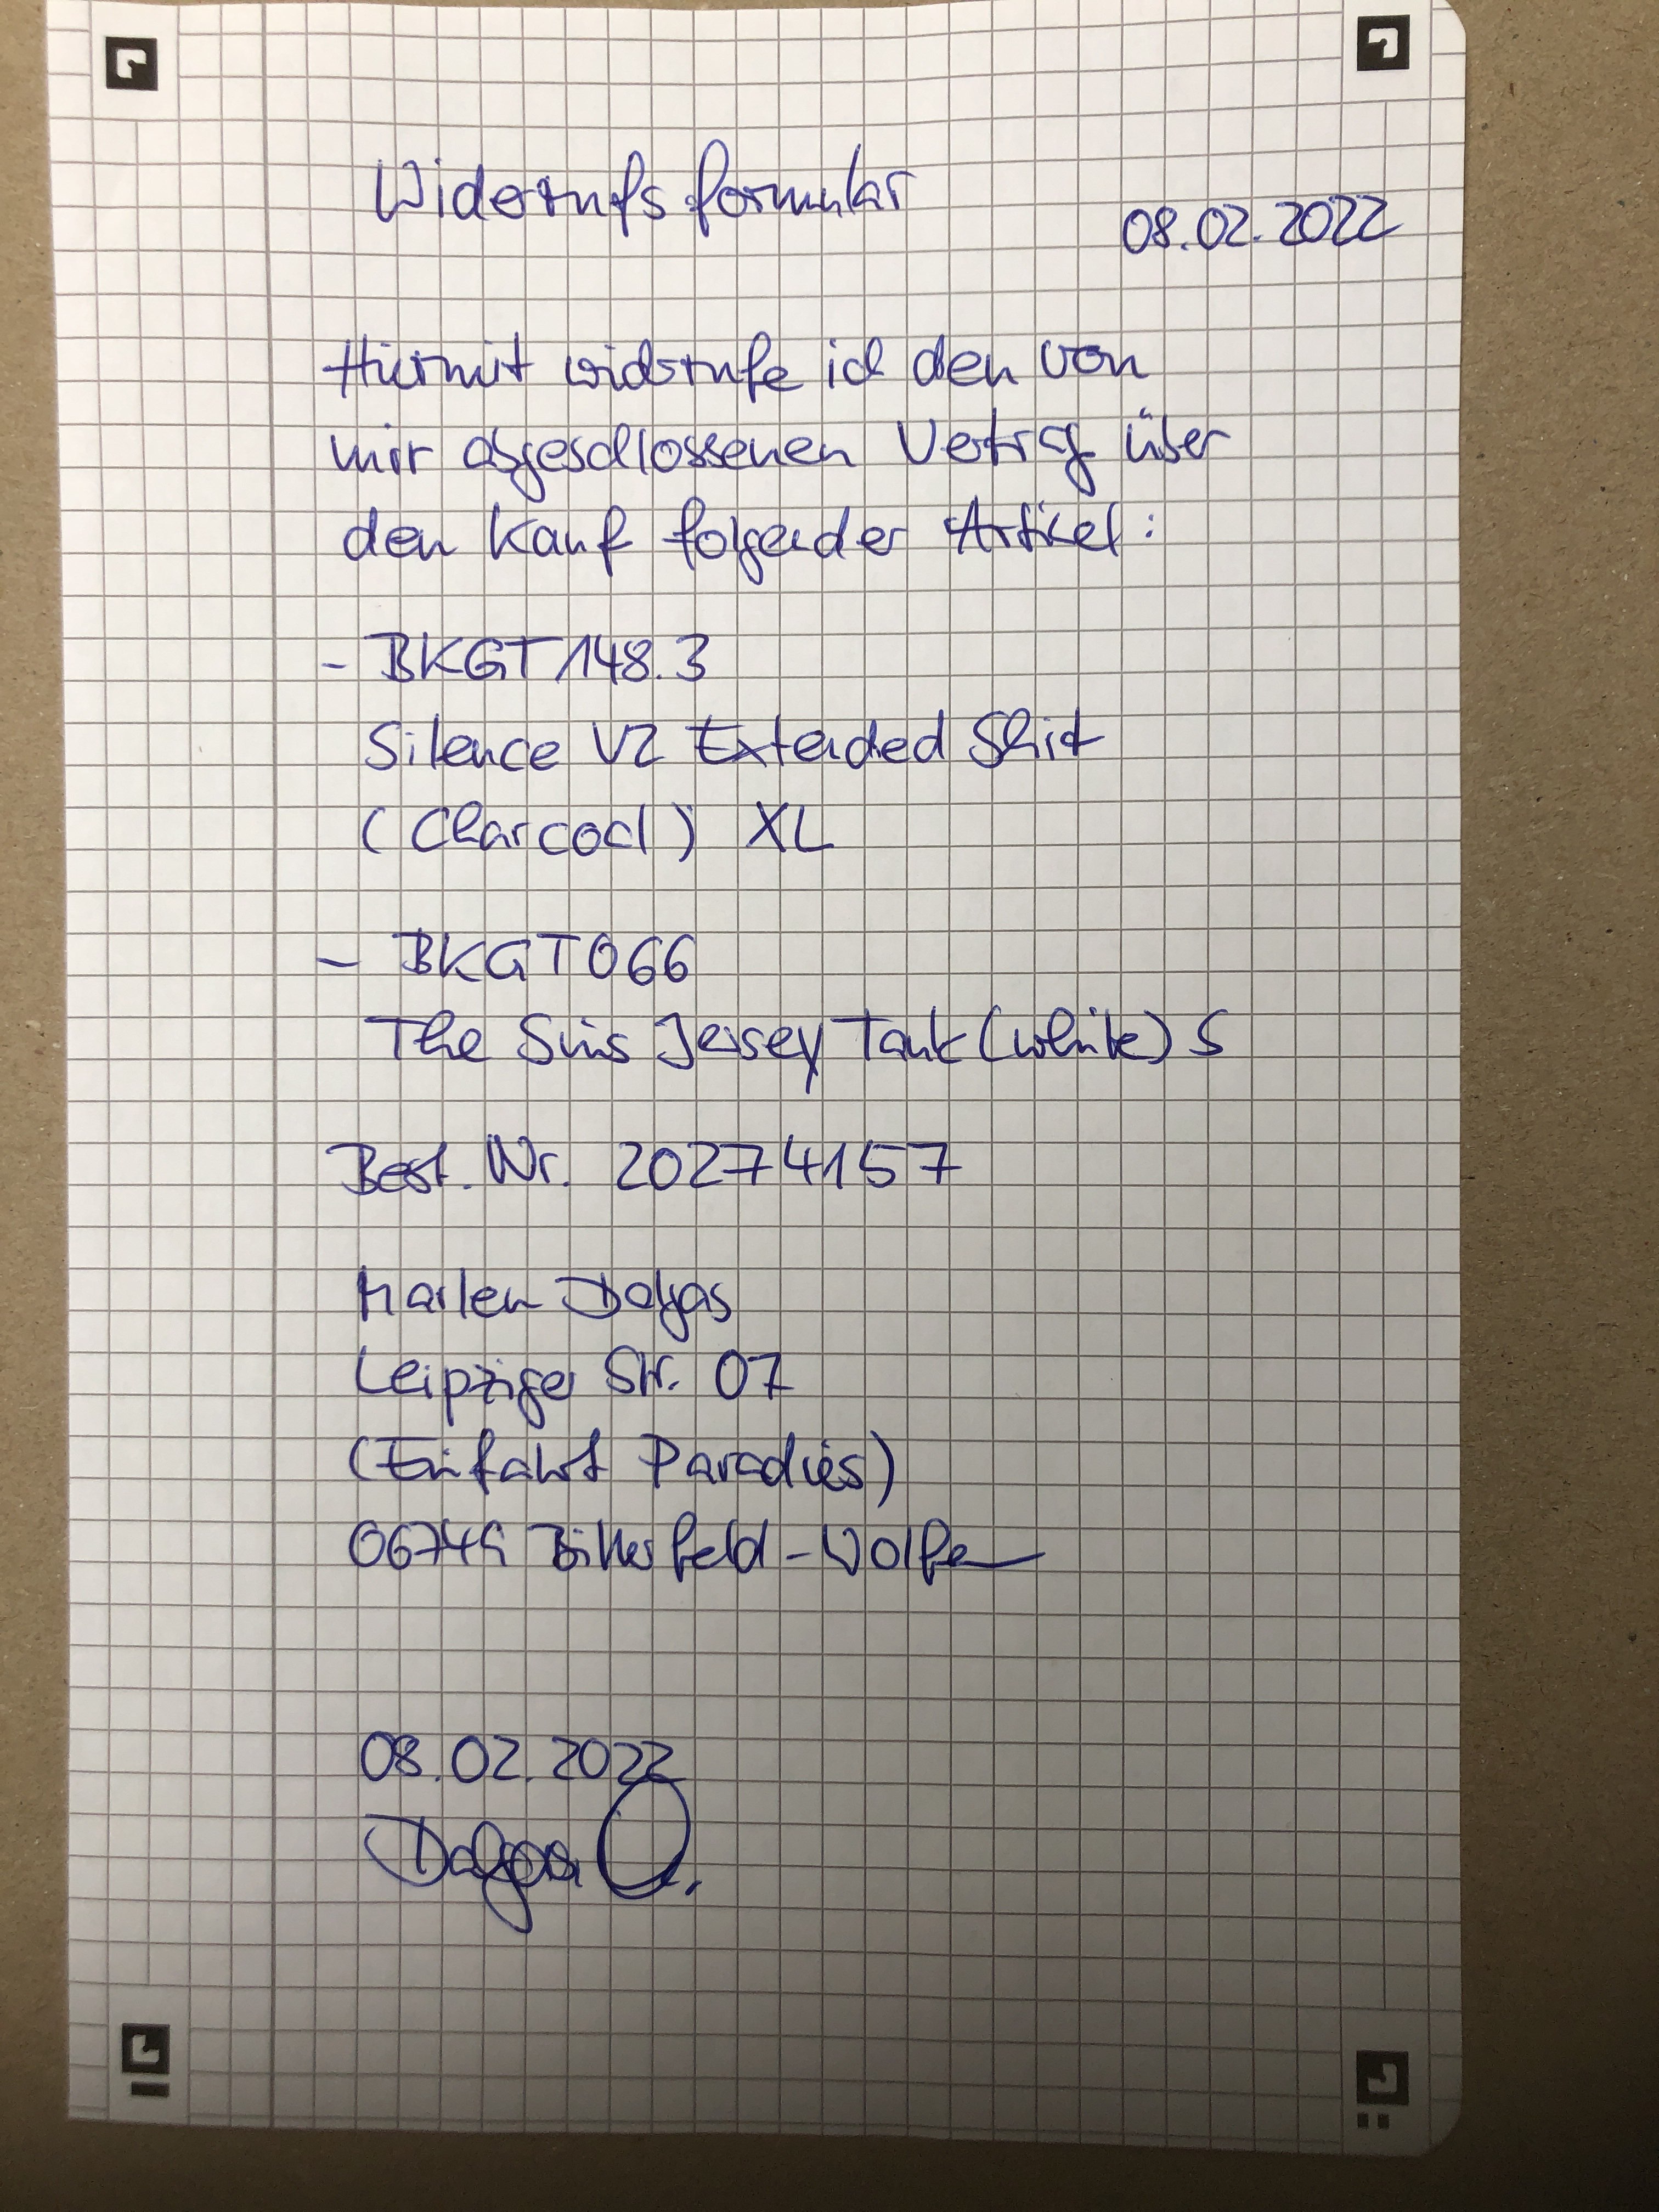 Widerrufsformular
08.02.2022
Hiermit widerrufe ich den von
mir abgeschlossenen Vertrag über
den Kauf folgender Artikel:
- BKGT148.3
Silence V2 Extended Shirt
(Charcoal) XL
- BKGT066
The Sins Jersey Tank (white) S
Best. Nr. 20274157
Marlen Dalgas
Leipziger Str. 07
(Einfahrt Paradies)
06749 Bitterfeld-Wolfen
08.02.2022